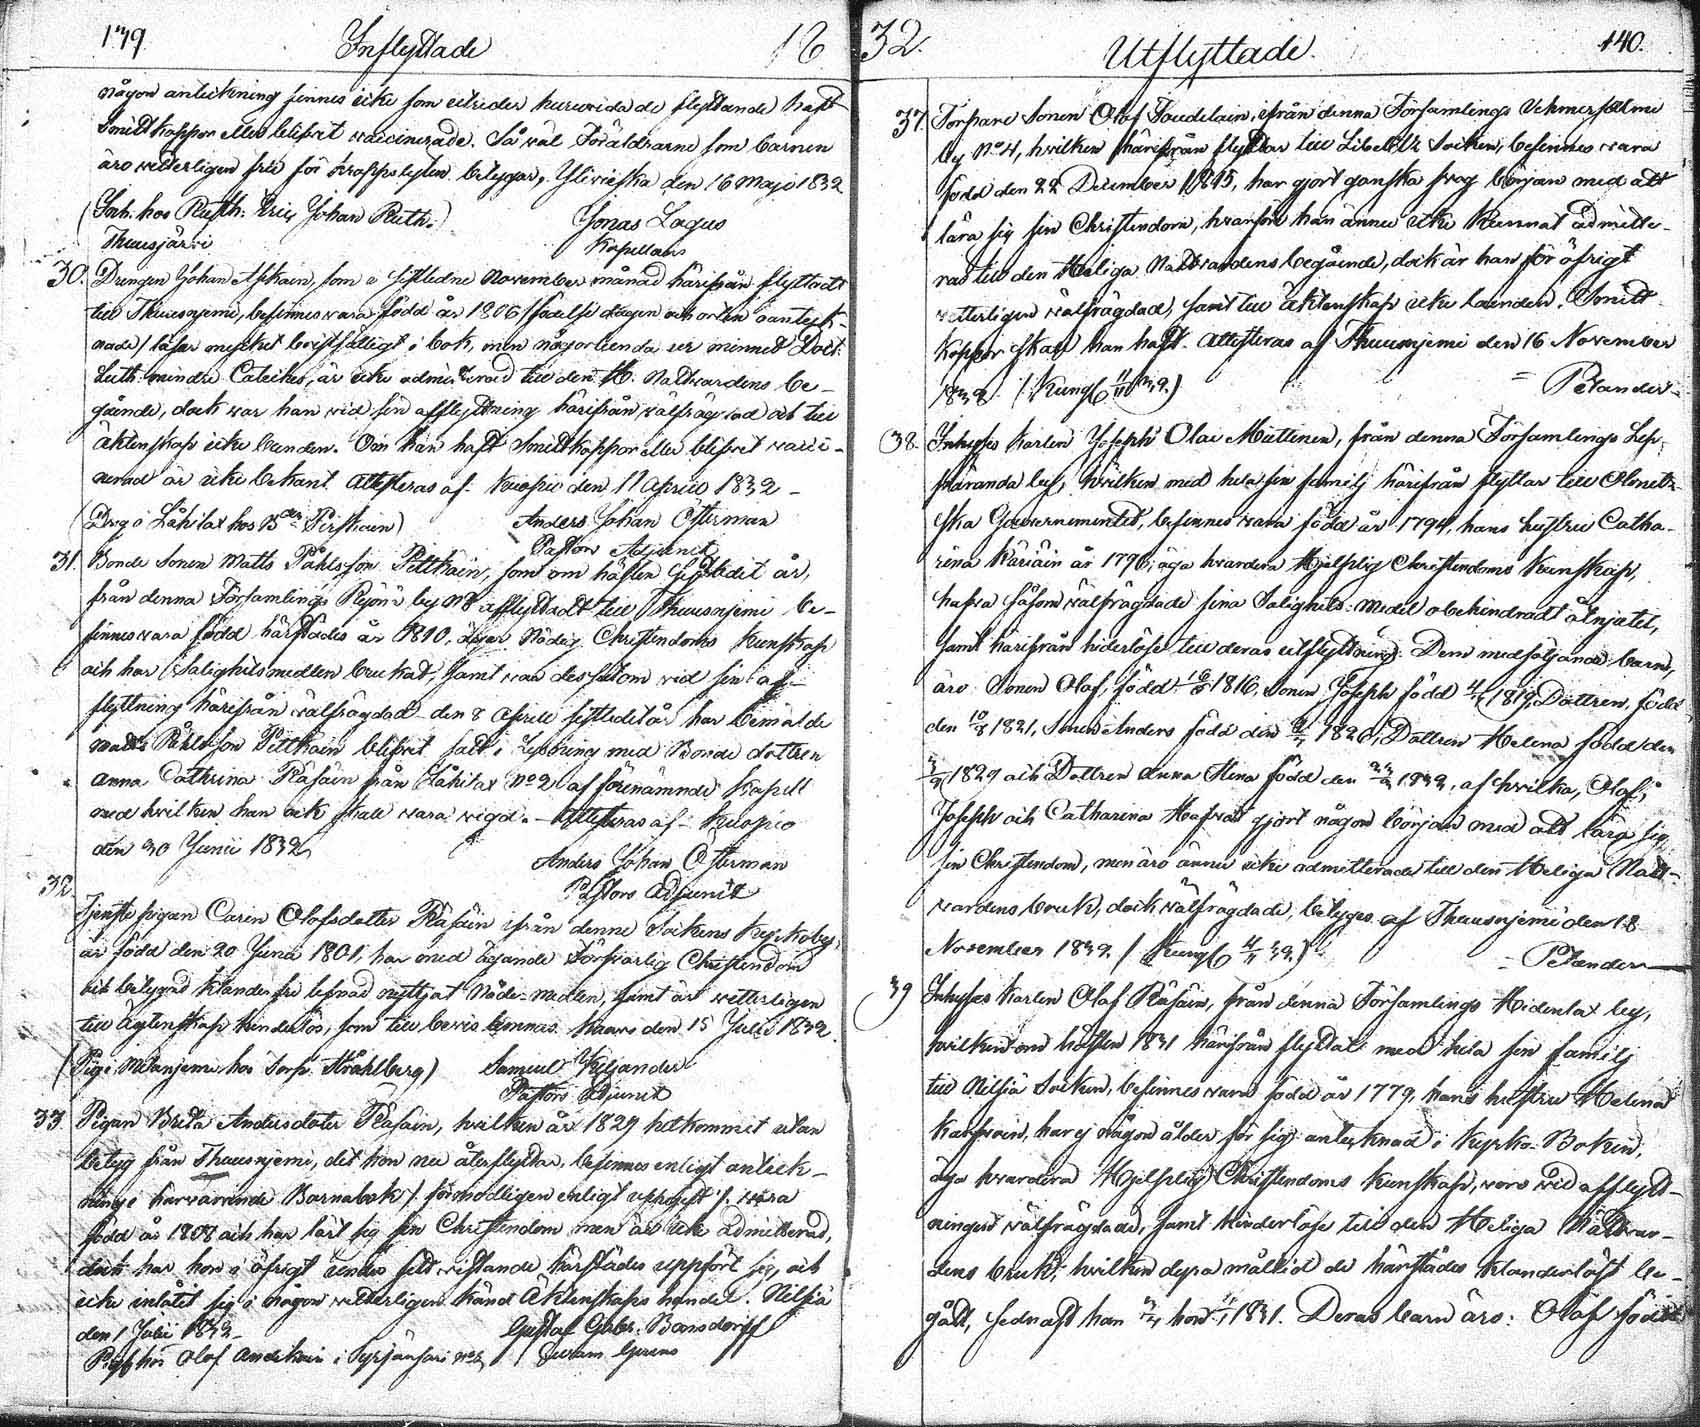 139 Inflyttade 18
någon anteckning finnes icke som utvider huruvida de flyttande haft
Smittkoppor eller blifvit vaccinerade. Så väl Föräldrarne som barnen
äro vetterligen frie för kroppslyten betygar, Ylivieska den 16 Maji 1832
(Inh. hos Rusth: Eric Johan Ruth.) Jonas Lagus
Tuusjärvi Kapellan
30. Drengen Johan, som i sistledne November månad härifrån flyttadt
till Thuusnjemi, befinnes vara född år 1806 /födelse dagen och orten oanteck-
nade/ läser mycket bristfälligt i bok, men någorlunda ur minnet Doct:
Luth: mindre Cateches, är icke admitterad till den H. Nattvardens be-
gående, dock var han vid sin afflyttning härifrån välfrägdad och till
äktenskap icke bunden. Om han haft Smittkoppor eller blifvit vacci-
nerad är icke bekant. Attesteras af Kuopio den 11 Aprill 1832
(Drg i Låkilax hos Pirskain) Anders Johan Österman
Pastors Adjunct
31. Bonde Sonen Matts Påhlsson Pitkäin, som om hösten sistledit år,
från denna Församlings by No 8 afflyttadt till Thuusnjemi be-
finnes vara född härstädes år 1810, äger Nödig Christendoms Kunskap
och har Salighetsmedlen brukat, samt var dessutom vid sin af-
flyttning härifrån välfrägdad. den 8 Aprill sistledit år har bemälde
Matts Påhlsson Pitkäin blifvit satt i Lysning med Bonde dottren
Anna Cathrina Räsäin från Låkilax No 2 af förenämnde Kapell
med hvilken han ock skall vara vigd. Attesteras af Kuopio
den 30 Junii 1832
Anders Johan Österman
Pastors Adjunct
32. Tjenste pigan Carin Olofsdotter Räsäin ifrån denne Sockens
är född den 20 Junii 1801, har med ägande Försvarlig Christendom
och betygad klanderfri lefnad nyttjat Nåde-medlen, samt är vetterligen
till Ägtenskap hinderlös, som till bevis lemnas. Kaavi den 15 Julii 1832
(Pig i hos Torp. Ståhlberg) Samuel Kiljander
Pastors Adjunct
33. Pigan Brita Andersdoter Räsäin, hvilken år 1829 hitkommit utan
betyg från Thuusnjemi, dit hon nu återflyttar, befinnes enligt anteck-
ning i härvarande Barnabok /: förmodligen enligt uppgift :/ vara
född år 1808 och har lärt sig sin Christendom men är icke admitterad,
dock har hon i öfrigt under sitt vistande härstädes uppfört sig, och
icke inlåtit sig i någon vetterligen känd Äktenskaps handel. Nilsiä
den 1 Julii 1832 Gustaf Gabr: Bonsdorff
Pig hos Olof i Syrjänsari No 2

32. Utflyttade 140.
37. Torpare Sonen Olof, ifrån denna Församlings
by No 4, hvilken härifrån flyttar till Libelitz Socken, befinnes vara
född den 22 December 1815, har gjort ganska svag början med att
lära sig sin Christendom, hvarföre han ännu icke kunnat admitte-
ras till den Heliga Nattvardens begående, dock är han för öfrigt
vetterligen välfrägdad, samt till äktenskap icke bunden. Smitt
koppor skall han haft. Attesteras af Thuusnjemi den 16 November
1832. Petander
38. Inhyses Karlen Joseph Olai Miettinen, från denna Församlings Lep-
päranda by, hvilken med hela sin familj härifrån flyttar till Olonetz-
ska Gouvernementet, befinnes vara född år 1794, hans hustru Catha-
rina år 1796, äga hvardera Hjelplig Christendoms Kunskap,
hafva såsom välfrägdade sina Salighets-medel obehindradt åtnjutet,
samt härifrån hinderlöse till deras utflyttning. Dem medföljande barn,
äro Sonen Olof, född 1816, Sonen Joseph född 1819, Dottren, född
den 10/8 1821, Sonen Anders född den 1826, Dottren Helena född den
1829 och Dottren Anna Stina född den 1832, af hvilka, Olof,
Joseph och Catharina Hafva gjort någon början med att lära sig
sin Christendom, men äro ännu icke admitterade till den Heliga Natt-
vardens bruk, dock välfrägdade, betyges af Thuusnjemi den 18
November 1832. Petander
39 Inhyses Karlen Olof Räsäin, från denna Församlings Hidenlax by,
hvilken om hösten 1831 härifrån flyttat med hela sin familj
till Nilsiä Socken, befinnes vara född år 1779, hans hustru Helena
har ej någon ålder för sig antecknad i Kyrko-Boken,
äga hvardera Hjelplig Christendoms Kunskap, voro vid afflytt-
ningen välfrägdade, samt hinderlöse till den Heliga Nattvar-
dens bruk, hvilken dyra måltid de härstädes klanderlöst be-
gått, sednast han hon 1831. Deras barn äro: Olof född